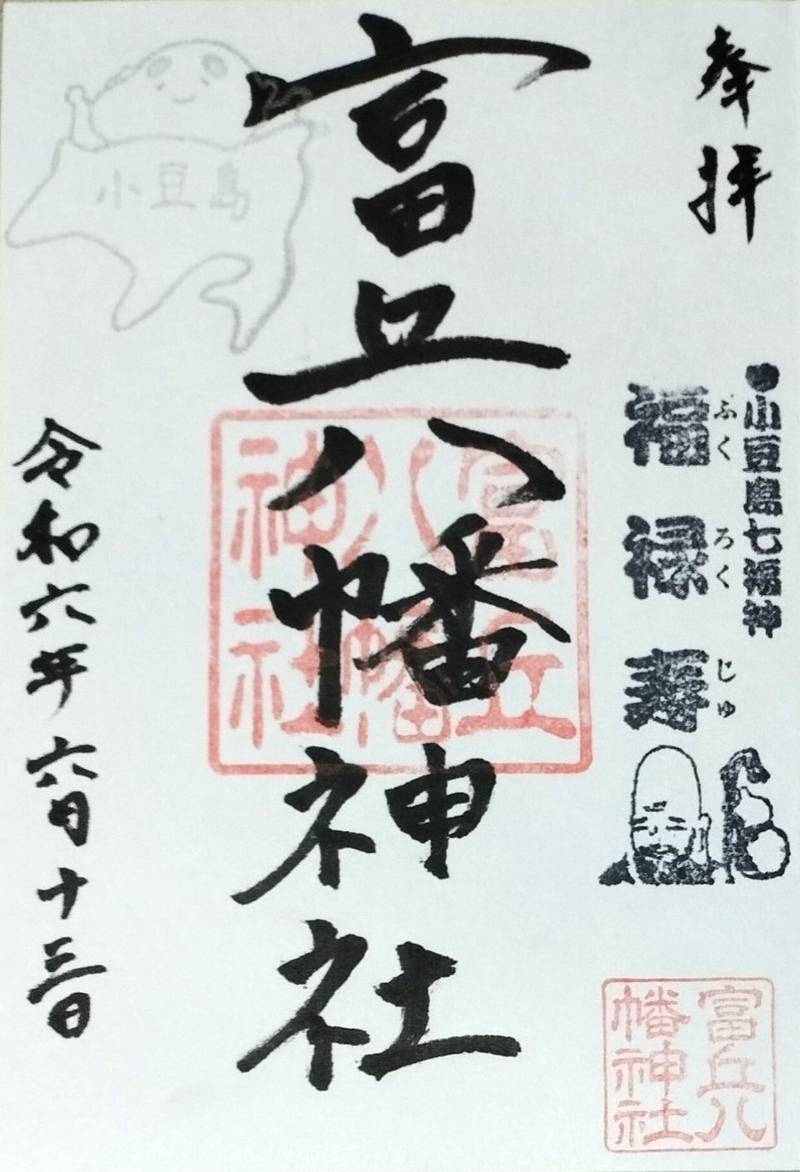 奉拝
●小豆島七福神
福禄寿
ふくろくじゅ
富丘八
幡神社
富丘八幡神社
富丘
八幡
神社
小豆島
令和六年六月十三日